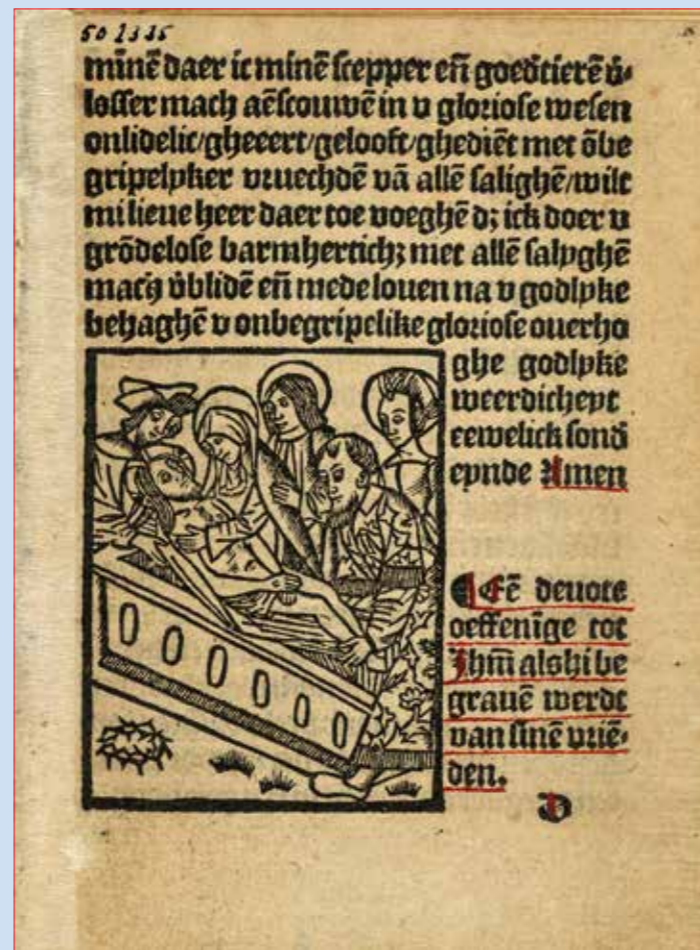 50 1335
mīnē daer ic minē scepper eñ goedtierē v̄-
losser mach aēscouwē in v gloriose wesen
onlidelic/gheeert/gelooft/ghediēt met ōbe
gripelyker vruechdē vā allē salighē/wilt
mi lieue heer daer toe voeghē dꝫ ick doer v
grōdelose barmhertichꝫ met allē salyghē
mach v̄blidē eñ mede louen na v godlyke
behaghē v onbegripelike gloriose ouerho
ghe godlyke
weerdicheyt
eewelick sond̄
eynde Amen
¶ Eē deuote
oeffenīge tot
Jhm̄ als hi be
grauē werdt
van sinē vriē-
den.
D